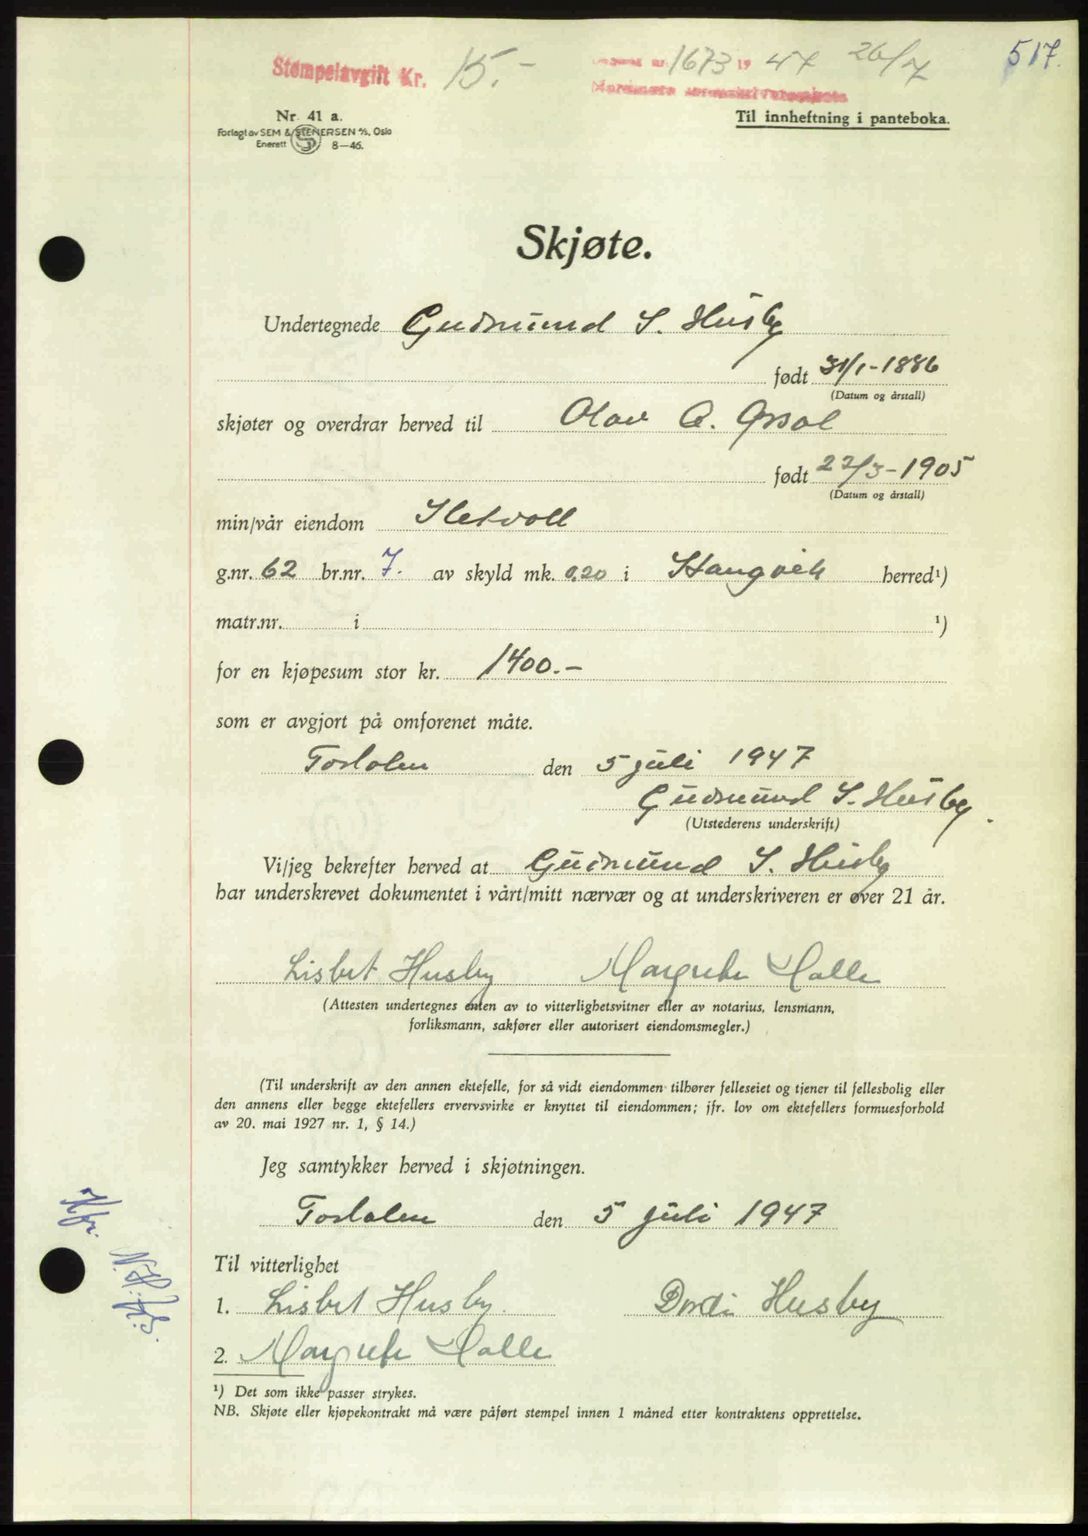 Stempelavgift Kr. 15.-
1673 19 47 26/7
517.
Nr. 41 a.
Forlagt av SEM & STENERSEN A/S, Oslo
Enerett 8—46.
Til innheftning i panteboka.
Skjøte.
Undertegnede Gudmund S. Husby
født 31/1-1886
(Datum og årstall)
skjøter og overdrar herved til Olav A.
født 22/3-1905
(Datum og årstall)
min/vår eiendom Sletvoll
g.nr. 62 br.nr. 7. av skyld mk. 0.20 i Stangvik herred¹)
matr.nr. i ¹)
for en kjøpesum stor kr. 1400.-
som er avgjort på omforenet måte.
den 5 juli 1947
Gudmund S. Husby.
(Utstederens underskrift)
Vi/jeg bekrefter herved at Gudmund S. Husby
har underskrevet dokumentet i vårt/mitt nærvær og at underskriveren er over 21 år.
Lisbet Husby Margrete Halle
(Attesten undertegnes enten av to vitterlighetsvitner eller av notarius, lensmann,
forliksmann, sakfører eller autorisert eiendomsmegler.)
(Til underskrift av den annen ektefelle, for så vidt eiendommen tilhører felleseiet og tjener til fellesbolig eller
den annens eller begge ektefellers ervervsvirke er knyttet til eiendommen; jfr. lov om ektefellers formuesforhold
av 20. mai 1927 nr. 1, § 14.)
Jeg samtykker herved i skjøtningen.
den 5 juli 1947
Til vitterlighet
1. Lisbet Husby Dordi Husby
2. Margrete Halle
¹) Det som ikke passer strykes.
NB. Skjøte eller kjøpekontrakt må være påført stempel innen 1 måned etter kontraktens opprettelse.